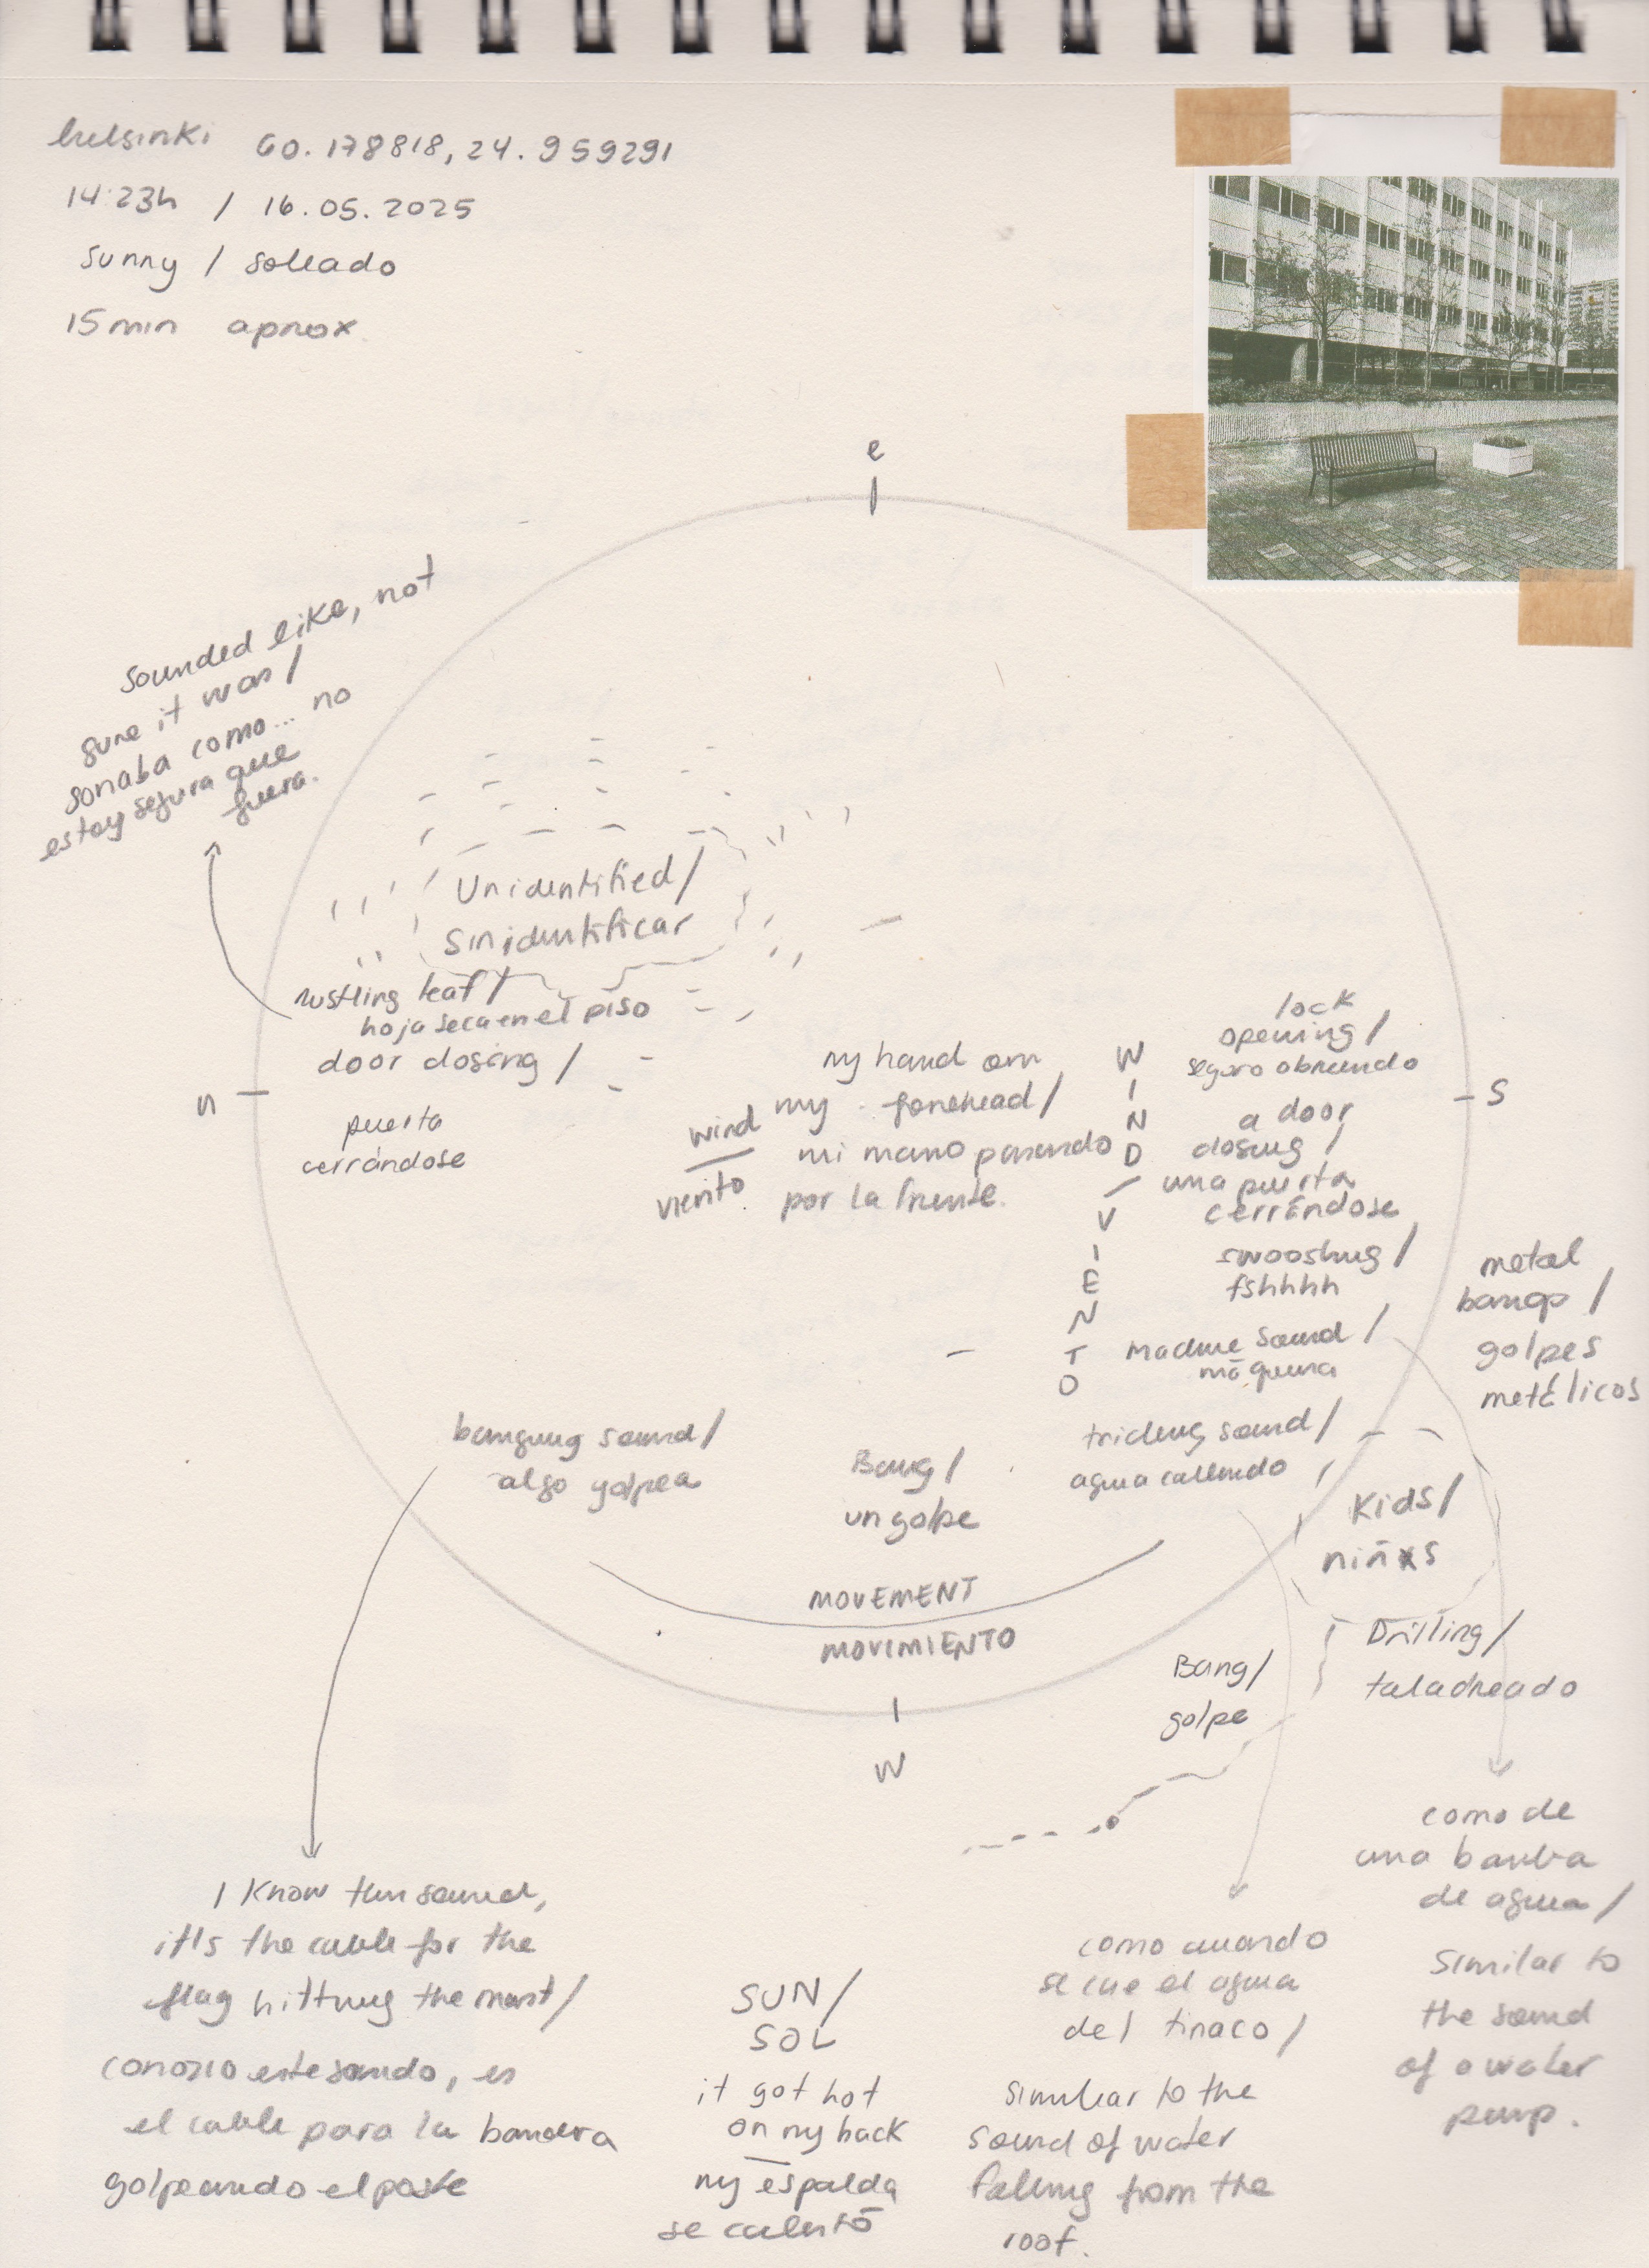 helsinki 60.178818, 24.959291
14:23h / 16.05.2025
sunny / soleado
15min aprox.
e
sounded like, not
sure it was /
sonaba como... no
estoy segura que
fuera.
Unidentified /
Sin identificar
rustling leaf /
hoja seca en el piso
door closing /
puerta
cerrándose
n
wind
viento
my hand on
my forehead /
mi mano pasando
por la frente.
WIND / VIENTO
lock
opening /
seguro abriendo
s
a door
closing /
una puerta
cerrándose
swooshing /
fshhhh
machine sound /
máquina
metal
bangs /
golpes
metálicos
banging sound /
algo golpea
Bang /
un golpe
tricling sound /
agua callendo
Kids /
niñxs
MOVEMENT
MOVIMIENTO
Drilling /
taladreado
Bang /
golpe
w
I know this sound,
it's the cable for the
flag hitting the mast /
conozco este sonido, es
el cable para la bandera
golpeando el poste
SUN /
SOL
it got hot
on my back
my espalda
se calentó
como cuando
se cae el agua
del tinaco /
similar to the
sound of water
falling from the
roof.
como de
una bomba
de agua /
similar to
the sound
of a water
pump.